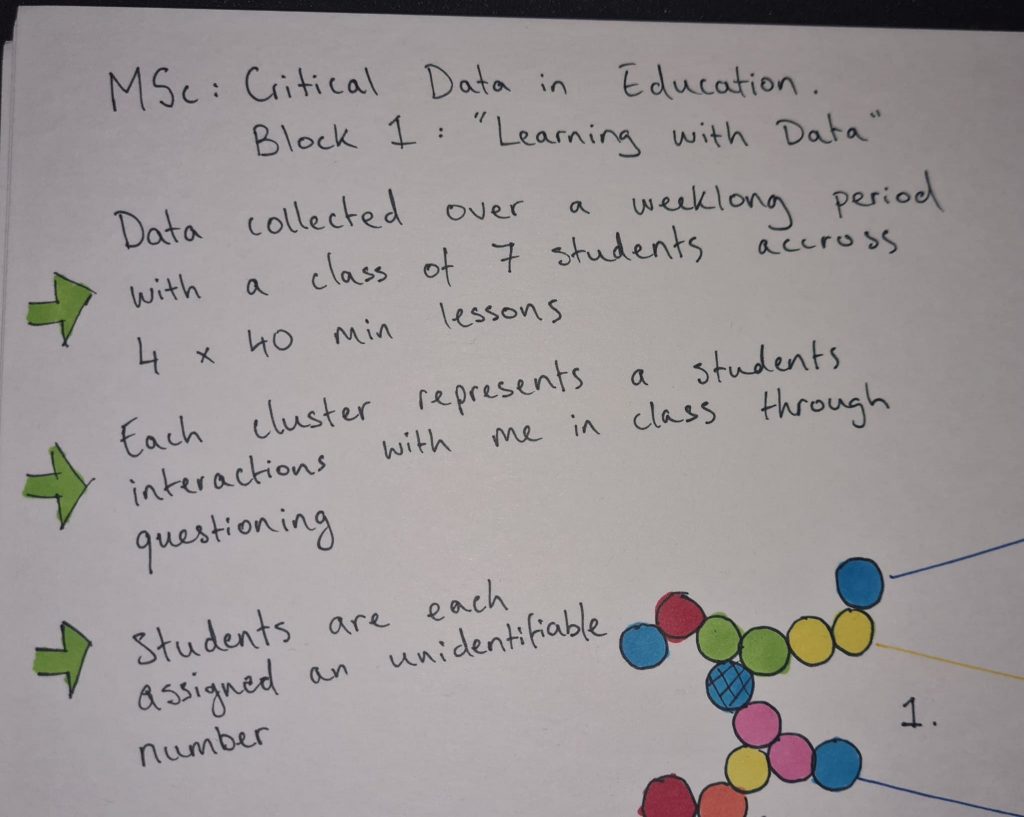 MSc: Critical Data in Education.
Block 1: "Learning with Data"
Data collected over a weeklong period
with a class of 7 students accross
4 x 40 min lessons
Each cluster represents a students
interactions with me in class through
questioning
Students are each
assigned an unidentifiable
number
1.